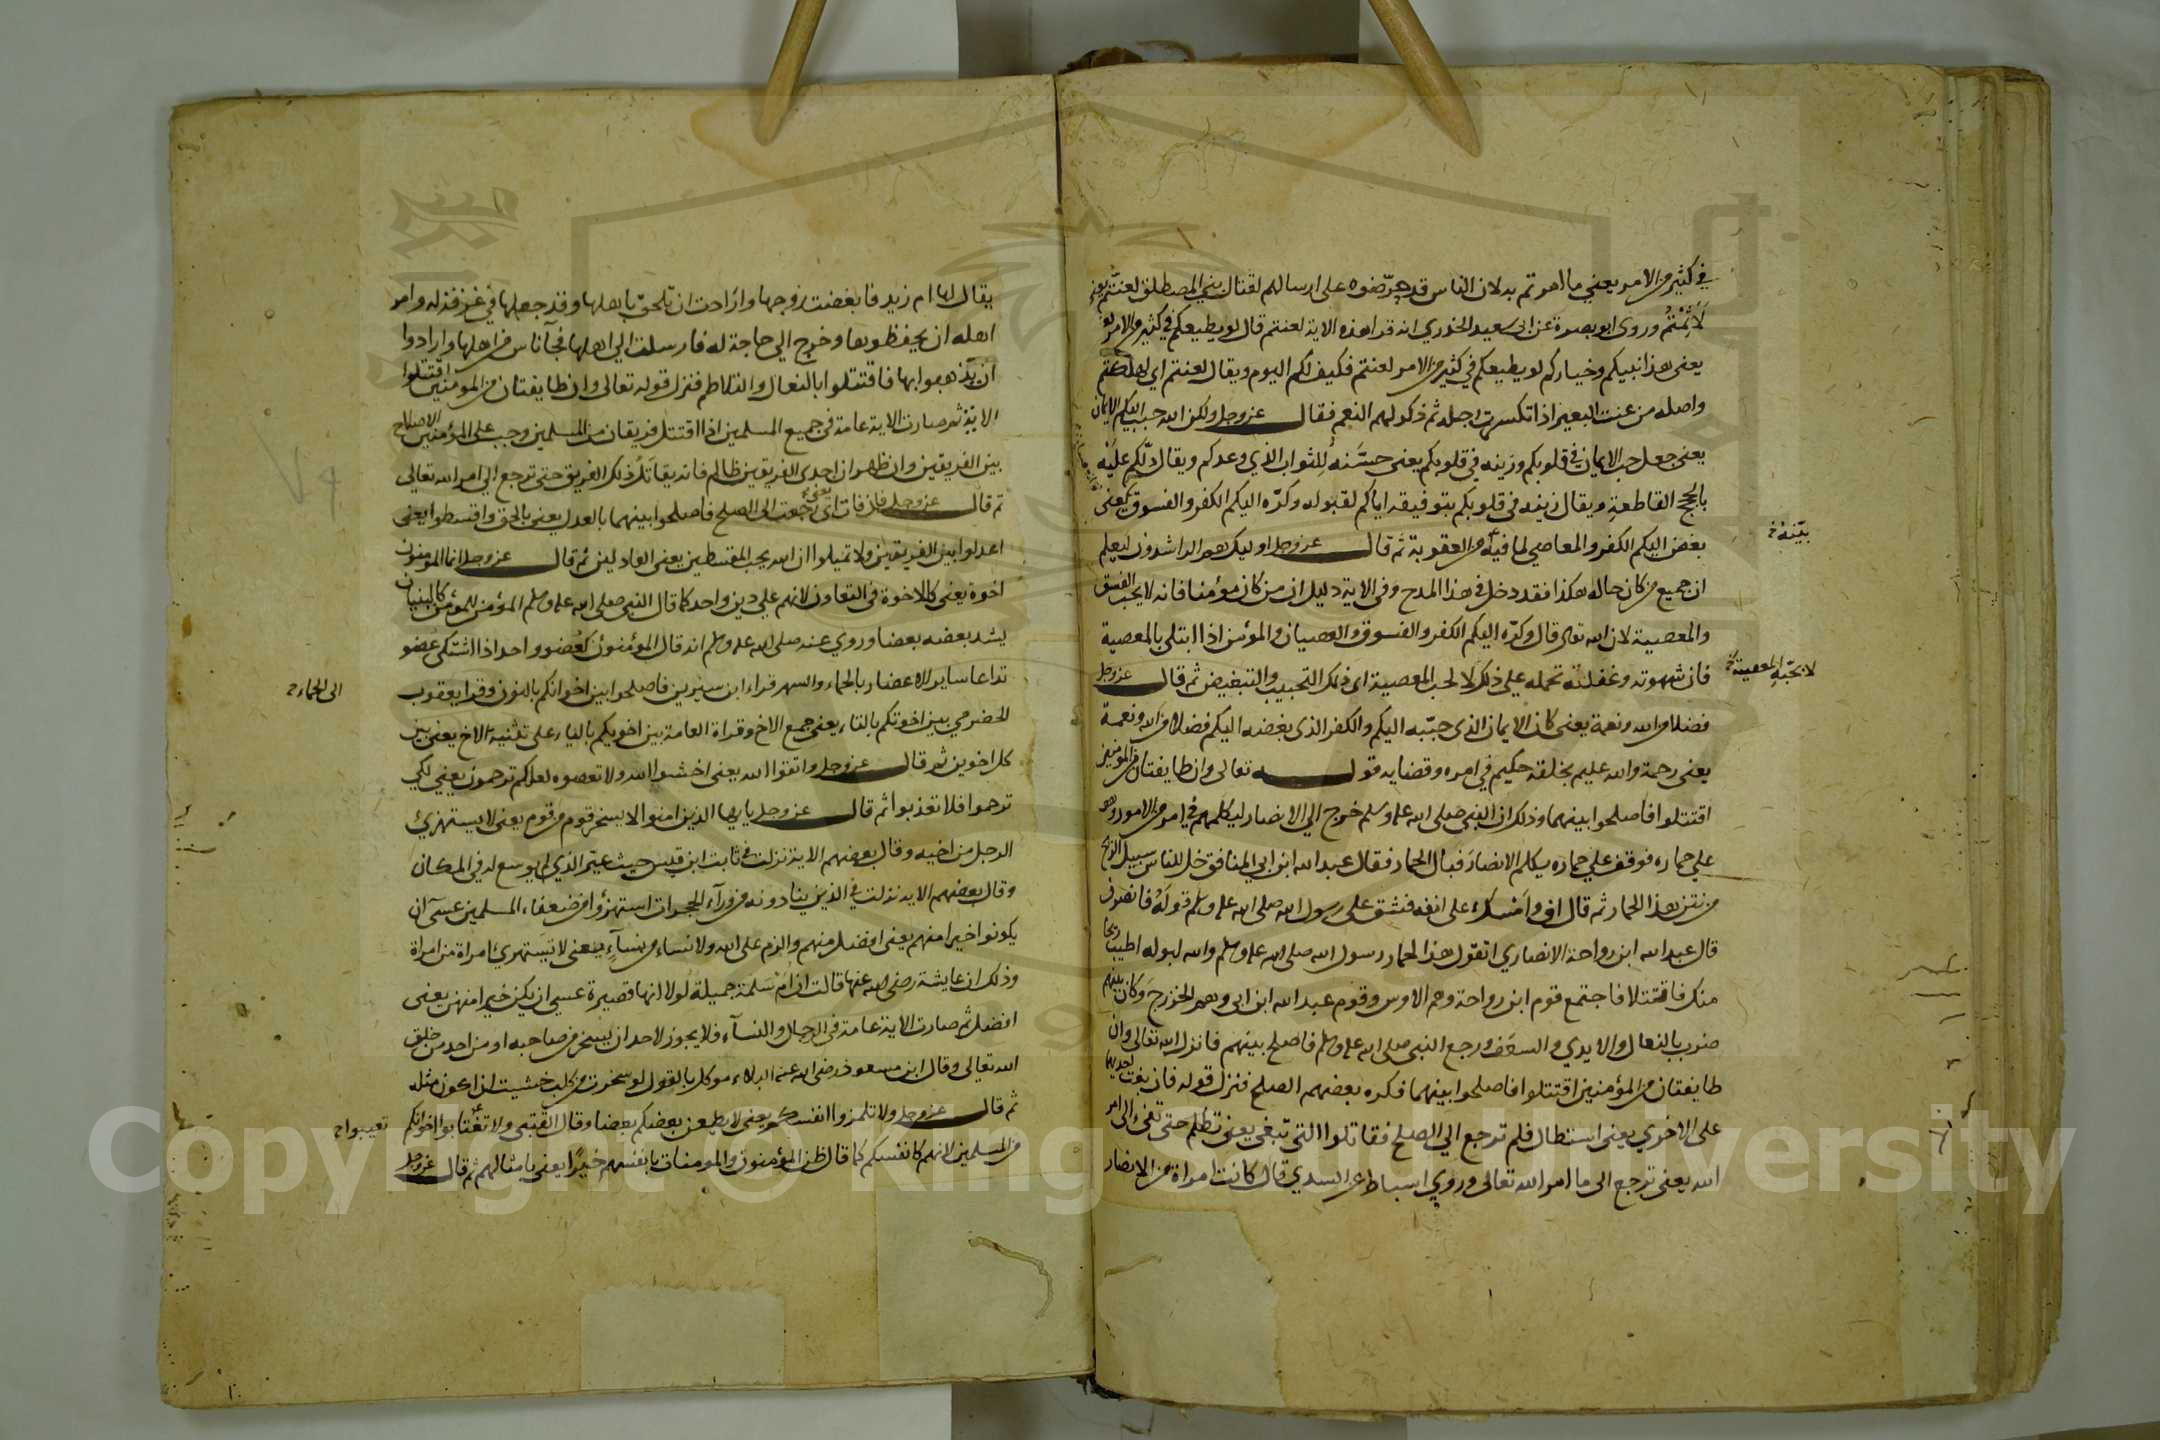 في كثير من الامر يعني ما امرتم به لان الناس قد حرّضوه على ارسالهم لقتال بني المصطلق لعنتم يعني
لَأَثِمْتُم وروى ابو بصرة عن ابي سعيد الخدري انه قرا هذه الاية لعنتم قال لو يطيعكم في كثير من الامر
يعني هذا نبيكم وخياركم لو يطيعكم في كثير من الامر لعنتم فكيف لكم اليوم ويقال لعنتم اي لهلكتم
واصله من عنت البعير اذا تكسرت رجله ثم ذكر لهم النعم فقال عز وجل ولكن الله حبب اليكم الايمان
يعني جعل حب الايمان في قلوبكم وزينه في قلوبكم يعني حسَّنه للثواب الذي وعدكم ويقال دلّكم عليه
بالحجج القاطعة ويقال زينه في قلوبكم بتوفيقه اياكم لقبوله وكرّه اليكم الكفر والفسوق يعني
بغض اليكم الكفر والمعاصي لما فيه من العقوبة ثم قال عز وجل اوليك هم الراشدون ليعلم
ان جميع من كان حاله هكذا فقد دخل في هذا المدح وفي الاية دليل ان من كان مؤمنا فانه لا يحب الفسق
والمعصية لان الله تعالى قال وكرّه اليكم الكفر والفسوق والعصيان والمؤمن اذا ابتلى بالمعصية
فان شهوته وغفلته تحمله على ذلك لا لحب المعصية اي ذلك التحبيب والتبغيض ثم قال عز وجل
فضلا من الله ونعمة يعني كان الايمان الذي حبّبه اليكم والكفر الذي بغضه اليكم فضلا من الله ونعمة
يعني رحمة والله عليم بخلقه حكيم في امره وقضايه قوله تعالى وان طايفتان من المومنين
اقتتلوا فاصلحوا بينهما وذلك ان النبي صلى الله عليه وسلم خرج الى الانصار ليكلمهم في امر من الامور وهو
على حماره فوقف على حماره يكلم الانصار فبال الحمار فقال عبد الله ابن ابي المنافق خل للناس سبيل الريح
من نتن هذا الحمار ثم قال اف وامسك على انفه فشق على رسول الله صلى الله عليه وسلم قوله فانصرف
قال عبد الله ابن رواحة الانصاري اتقول هذا لحمار رسول الله صلى الله عليه وسلم والله لبوله اطيب ريحا
منك فاقتتلا فاجتمع قوم ابن رواحة وهم الاوس وقوم عبد الله ابن ابي وهم الخزرج وكان بينهم
ضرب بالنعال والايدي والسعف ورجع النبي صلى الله عليه وسلم فاصلح بينهم فانزل الله تعالى وان
طايفتان من المؤمنين اقتتلوا فاصلحوا بينهما فكره بعضهم الصلح فنزل قوله فان بغت احديهما
على الاخرى يعني استطال فلم ترجع الى الصلح فقاتلوا التي تبغي يعني تظلم حتى تفيء الى امر
الله يعني ترجع الى ما امر الله تعالى وروى اسباط عن السدي قال كانت امراة من الانصار
بيّنه
لا بحبّه المعصية
يقال لها ام زيد فابغضت زوجها وارادت ان تلحق باهلها وقد جعلها في غرفة له وامر
اهله ان يحفظوها وخرج الى حاجة له فارسلت الى اهلها فجآ ناس من اهلها وارادوا
ان يذهبوا بها فاقتتلوا بالنعال والتلاطم فنزل قوله تعالى وان طايفتان من المومنين اقتتلوا
الاية ثم صارت الاية عامة في جميع المسلمين اذا اقتتل فريقان من المسلمين وجب على المؤمنين الاصلاح
بين الفريقين وان ظهر ان احدى الفريقين ظالم فانه يقاتَل ذلك الفريق حتى ترجع الى امر الله تعالى
ثم قال عز وجل فان فات اي يعني رجعت الى الصلح فاصلحوا بينهما بالعدل يعني بالحق واقسطوا يعني
اعدلوا بين الفريقين ولا تميلوا ان الله يحب المقسطين يعني العادلين ثم قال عز وجل انما المومنون
اخوة يعني كالاخوة في التعاون لانهم على دين واحد كما قال النبي صلى الله عليه وسلم المؤمن للمؤمن كالبنيان
يشد بعضه بعضا وروي عنه صلى الله عليه وسلم انه قال المؤمنون كعُضو واحد اذا اشتكى عضو
تداعا ساير الاعضا بالحماء والسهر قراء ابن سيرين فاصلحوا بين اخوانكم بالنون وقرا يعقوب
الحضرمي بين اخوتكم بالتاء يعني جمع الاخ وقراة العامة بين اخويكم بالياء على تثنية الاخ يعني بين
كل اخوين ثم قال عز وجل واتقوا الله يعني اخشوا الله ولا تعصوه لعلكم ترحمون يعني لكي
ترحموا فلا تعذبوا ثم قال عز وجل يايها الذين امنوا لا يسخر قوم من قوم يعني لا يستهزئ
الرجل من اخيه وقال بعضهم الاية نزلت في ثابت ابن قيس حيث عيّر الذي لم يوسع له في المكان
وقال بعضهم الاية نزلت في الذين ينادونه من ورآء الحجرات استهزؤا من ضعفاء المسلمين عسى ان
يكونوا خيرا منهم يعني افضل منهم والزم على الله ولا نساء من نسآءٍ يعني لا تستهزئ امراة من امراة
وذلك ان عايشة رضي الله عنها قالت ان ام سَلمة جميلة لولا انها قصيرة عسى ان يكن خيرا منهن يعني
افضل ثم صارت الاية عامة في الرجال والنسآء فلا يجوز لاحد ان يسخر من صاحبه او من احد من خلق
الله تعالى وقال ابن مسعود رضي الله عنه البلاء موكل بالقول لو سخرت من كلب خشيت ان اكون مثله
ثم قال عز وجل ولا تلمزوا انفسكم يعني لا يطعن بعضكم بعضا وقال القتبي ولا تغتابوا اخوانكم
من المسلمين لانهم كانفسكم كما قال ظن المؤمنون والمومنات بانفسهم خيرًا يعني بامثالهم ثم قال عز وجل
الى الحماء
تعيبوا
Copyright © King Saud University